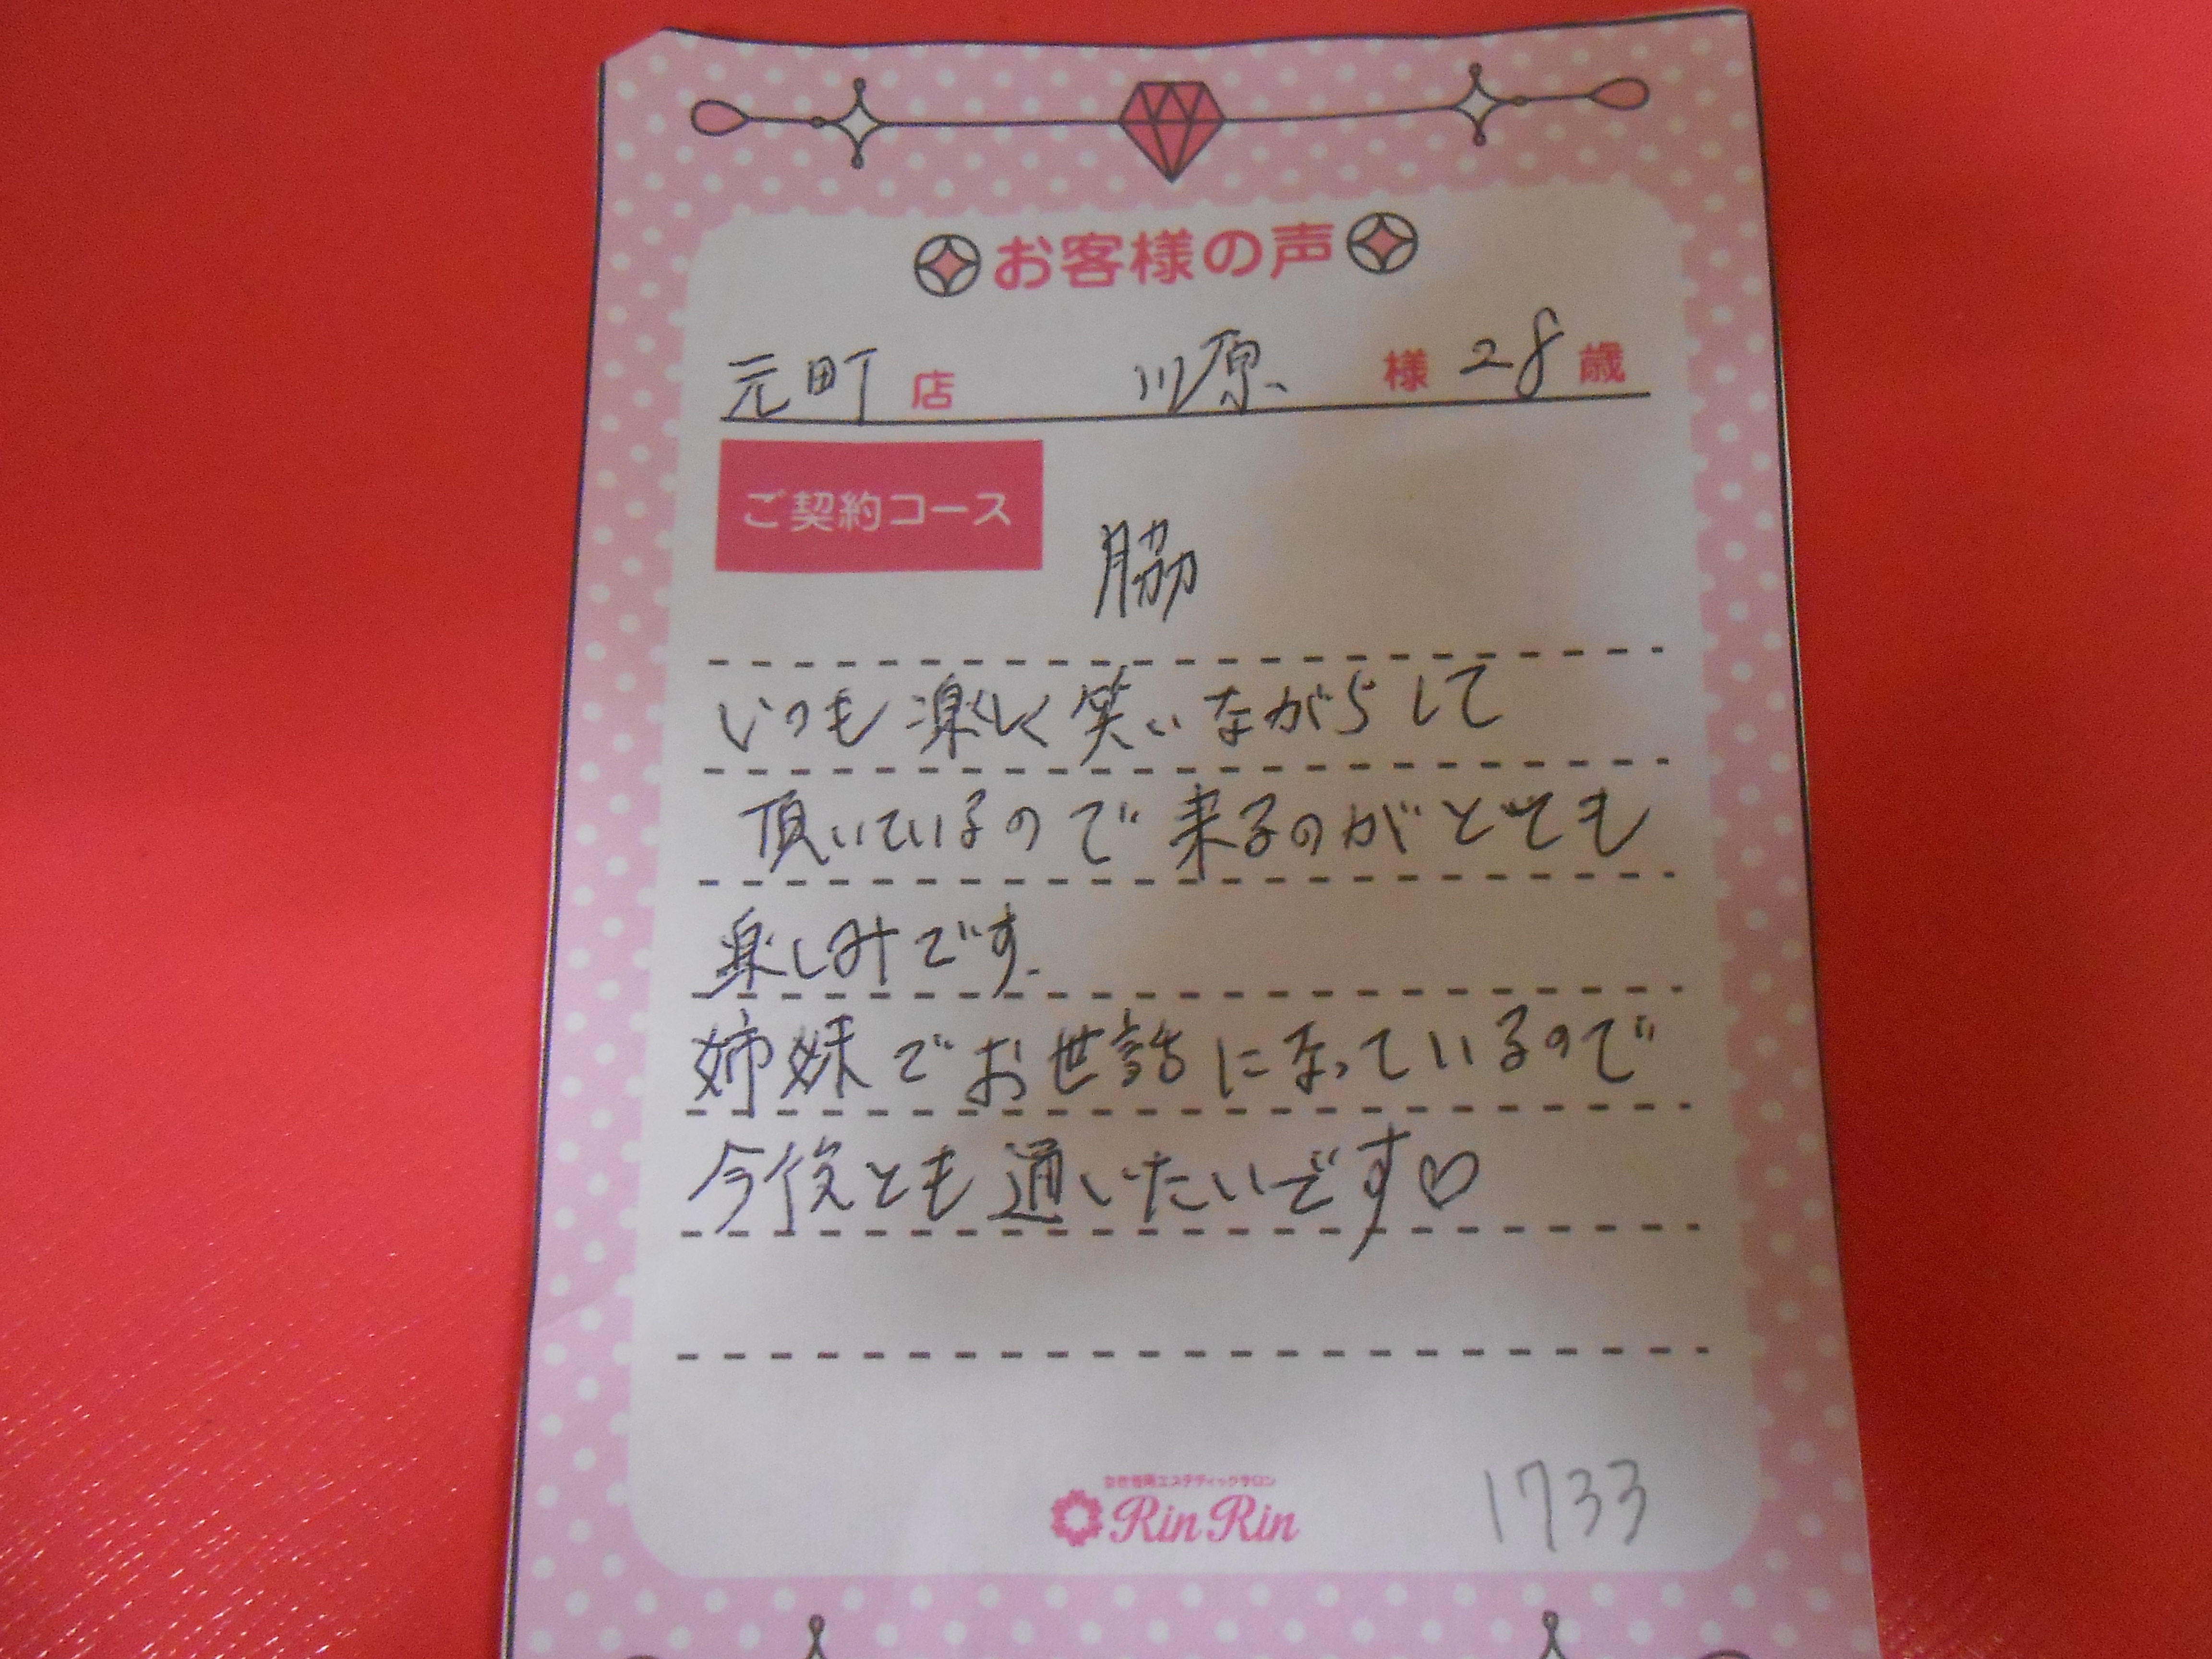 お客様の声
元町 店 川原 様 28 歳
ご契約コース
脇
いつも楽しく笑いながらして
頂いているので来るのがとても
楽しみです.
姉妹でお世話になっているので
今後とも通いたいです♡
女性専用エステティックサロン
RinRin
1733